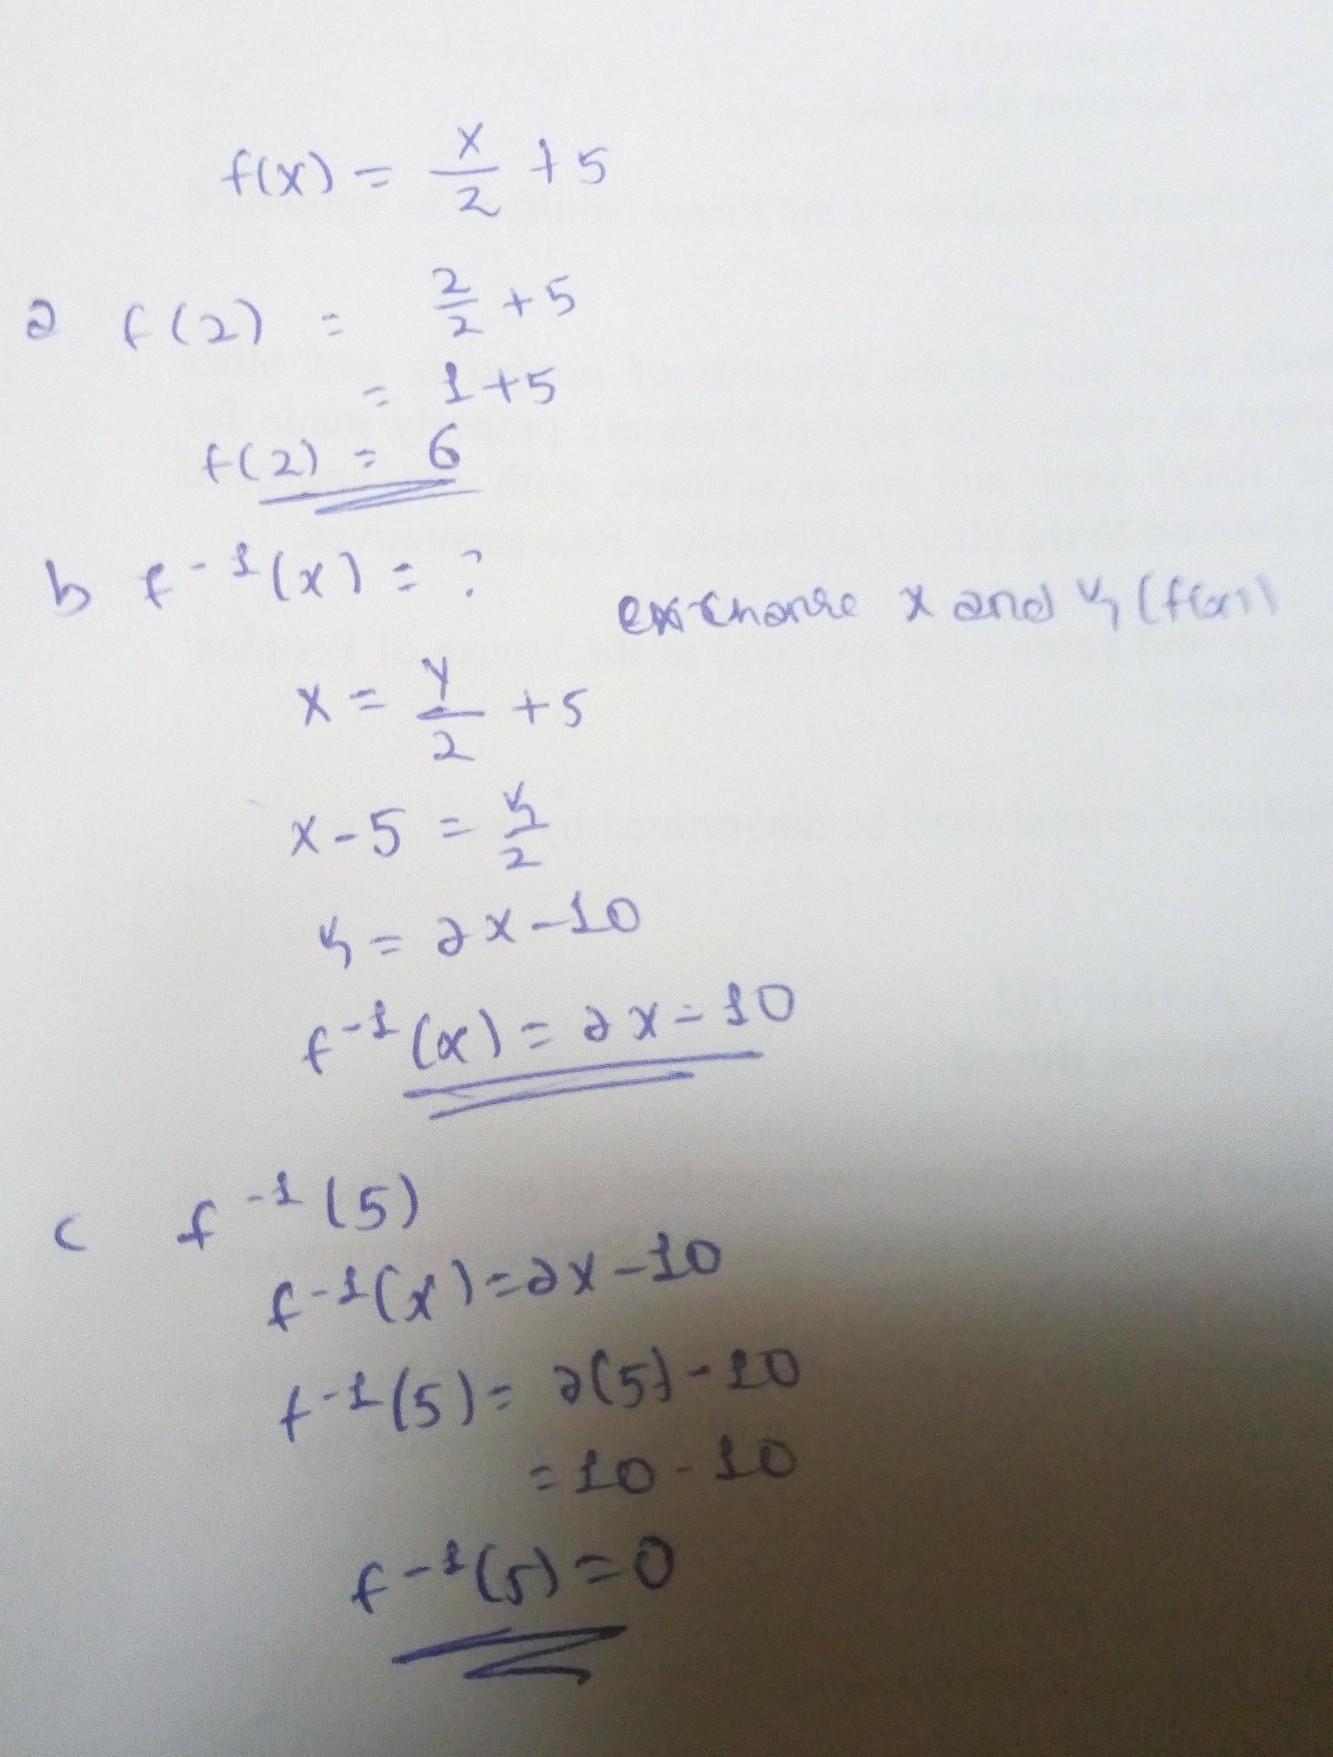 f(x) = x/2 + 5
a f(2) = 2/2 + 5
= 1+5
f(2) = 6
b f⁻¹(x) = ?
exchange x and y (f(x))
x = y/2 + 5
x - 5 = y/2
y = 2x - 10
f⁻¹(x) = 2x - 10
c f⁻¹(5)
f⁻¹(x) = 2x - 10
f⁻¹(5) = 2(5) - 10
= 10 - 10
f⁻¹(5) = 0